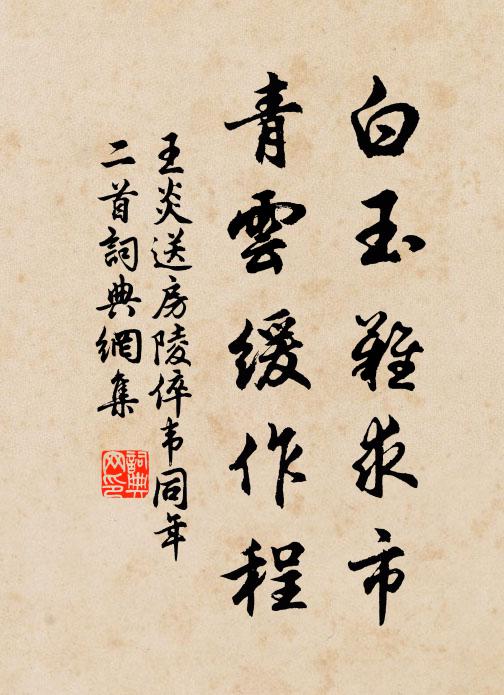 白玉難求市
青雲緩作程
王炎送房陵倅韦同年
二首詞典網集
詞典
网印